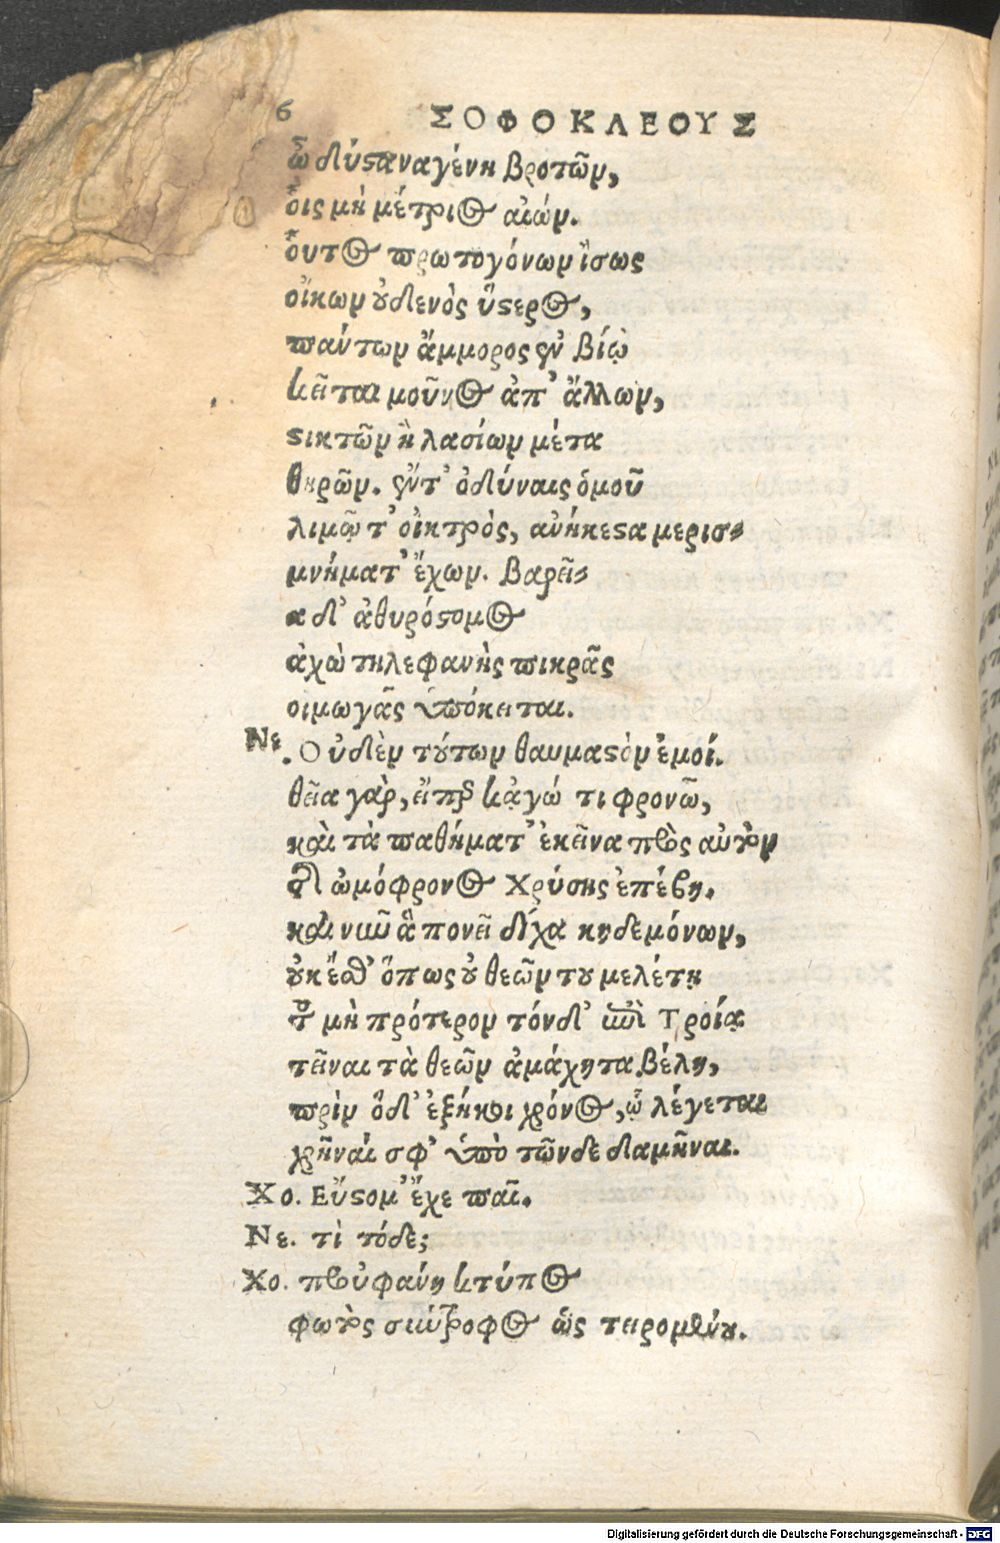 6 ΣΟΦΟΚΛΕΟΥΣ
ὦ δύϛανα γένη βροτῶν,
οἷς μὴ μέτριος αἰών.
οὗτος πρωτογόνων ἴσως
οἴκων οὐδενὸς ὕϛερος,
πάντων ἄμμορος ἐν βίῳ
κεῖται μοῦνος ἀπ' ἄλλων,
ϛικτῶν ἢ λασίων μέτα
θηρῶν. ἔν τ' ὀδύναις ὁμοῦ
λιμῷ τ' οἰκτρὸς, ἀνήκεϛα μερισ-
μνήματ' ἔχων. βαρεῖ-
α δ' ἀθυρόϛομος
ἀχὼ τηλεφανὴς πικρᾶς
οιμωγᾶς ὑπόκειται.
Νε. Οὐδὲν τούτων θαυμαϛὸν ἐμοί.
θεῖα γὰρ, εἴπερ κᾀγώ τι φρονῶ,
καὶ τὰ παθήματ' ἐκεῖνα πρὸς αὐτὸν
τῆς ὠμόφρονος Χρύσης ἐπέβη.
καὶ νῦν ἃ πονεῖ δίχα κηδεμόνων,
οὐκ ἔσθ' ὅπως οὐ θεῶν του μελέτῃ
τοῦ μὴ πρότερον τόνδ' ἐπὶ Τροίᾳ
τεῖναι τὰ θεῶν ἀμάχητα βέλη,
πρὶν ὅδ' ἐξήκοι χρόνος, ᾧ λέγεται
χρῆναί σφ' ὑπὸ τῶνδε δαμῆναι.
Χο. Εὔϛομ' ἔχε παῖ.
Νε. τὶ τόδε;
Χο. προὐφάνη κτύπος
φωτὸς σύντροφος ὡς τειρομένου.
Digitalisierung gefördert durch die Deutsche Forschungsgemeinschaft - DFG